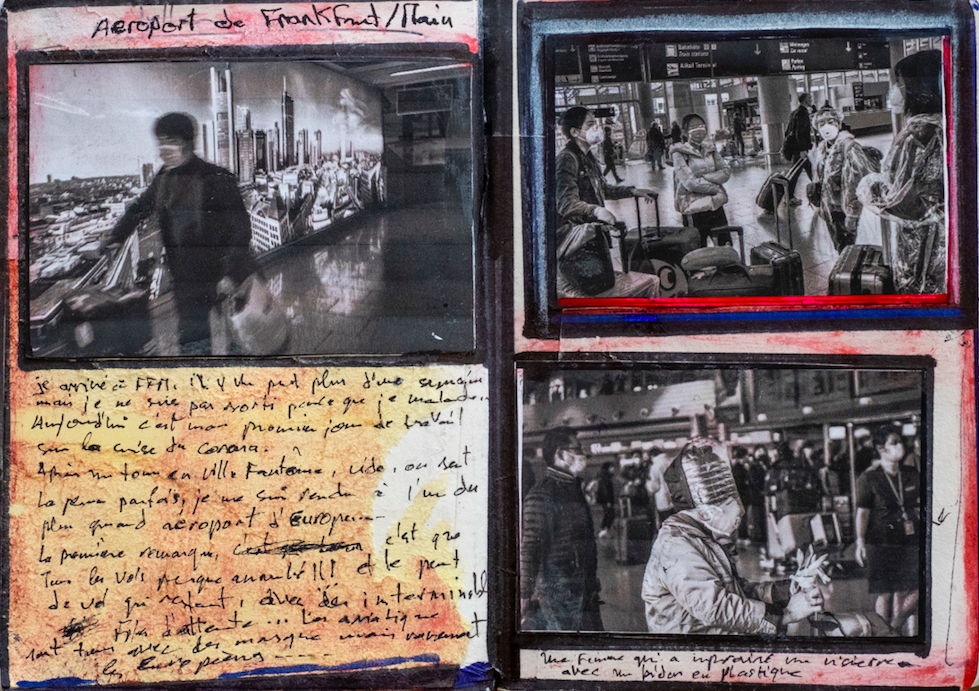 Aeroport de Frankfrut/Main
je arrivé à FFM, il y un peut plus d'une semain
mais je ne suis pas sorti parce que je malade..
Aujourd'hui c'est mon premier jour de travail
sur la crise du corona.
Après un tour en ville Fantôme, vide, on sent
la peur parfois, je me suis rendu à l'un du
plus grand aeroport d'Europe...
La première remarque, c'est que
Tous les vols presque annulé!!! et le peut
de vol qui restent, avec des interminable
Files d'attente... Les asiatique
sont tous avec des masque mais rarement
les Européens .....
Une Femme qui a improvisé une visière
avec un bidon en plastique